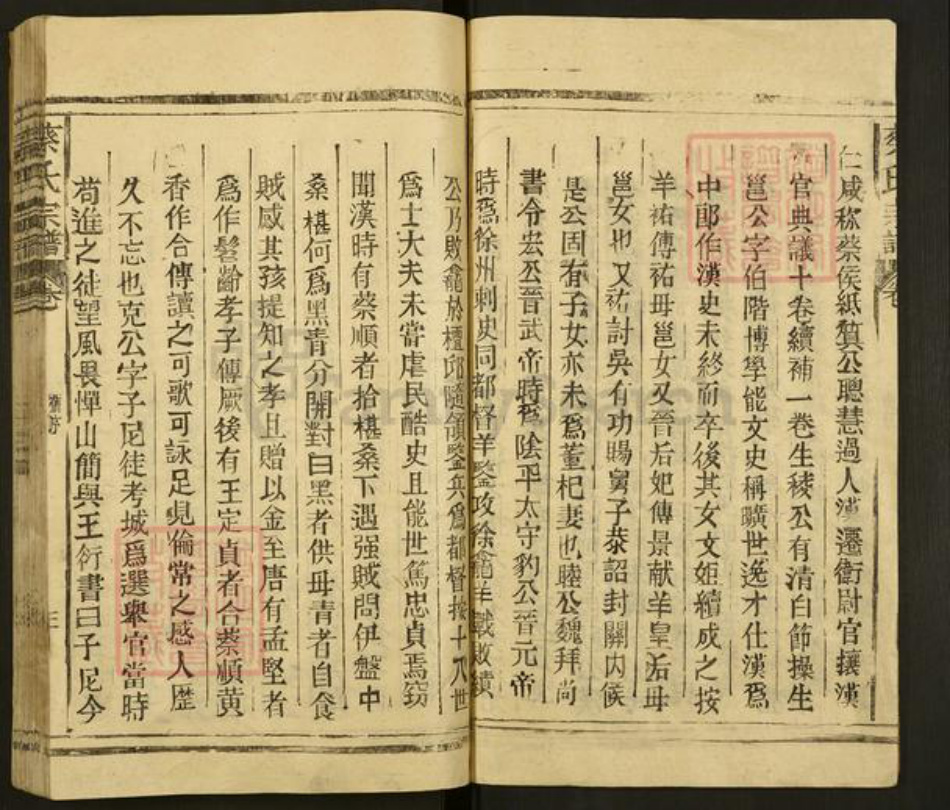 仁咸称蔡侯紙質公聰慧過人漢遷衛尉官攘漢
官典議十卷續補一卷生稜公有清白節操生
邕公字伯階博學能文史稱曠世逸才仕漢爲
中郎作漢史未終而卒後其女文姬續成之按
羊祜傳祜毋邕女又晉后妃傳景献羊皇后毋
邕女也又祜討吳有功賜舅子恭詔封關内侯
是公固有子女亦未爲董杞妻也睦公魏拜尚
書令宏丕晉武帝時爲陰平太守豹公晉元帝
時爲徐州刺史同都督羊鑒攻徐龕羊鑒敗績
公乃敗龕於檀邱隨領鑒兵爲都督按十八世
爲士大夫未嘗虐民酷史且能世篤忠貞焉窃
聞漢時有蔡順者拾椹桑下遇强賊問伊盤中
桑椹何爲黑青分開對曰黑者供毋青者自食
賊感其孩提知之孝且贈以金至唐有孟堅者
爲作髫齡孝子傳厥後有王定貞者合蔡順黄
香作合傳讀之可歌可詠足見倫常之感人歷
久不忘也克公字子尼徒考城爲選舉官當時
苟進之徒望風畏憚山簡與王衍書曰子尼今
蔡氏宗譜
卷
舊序
三